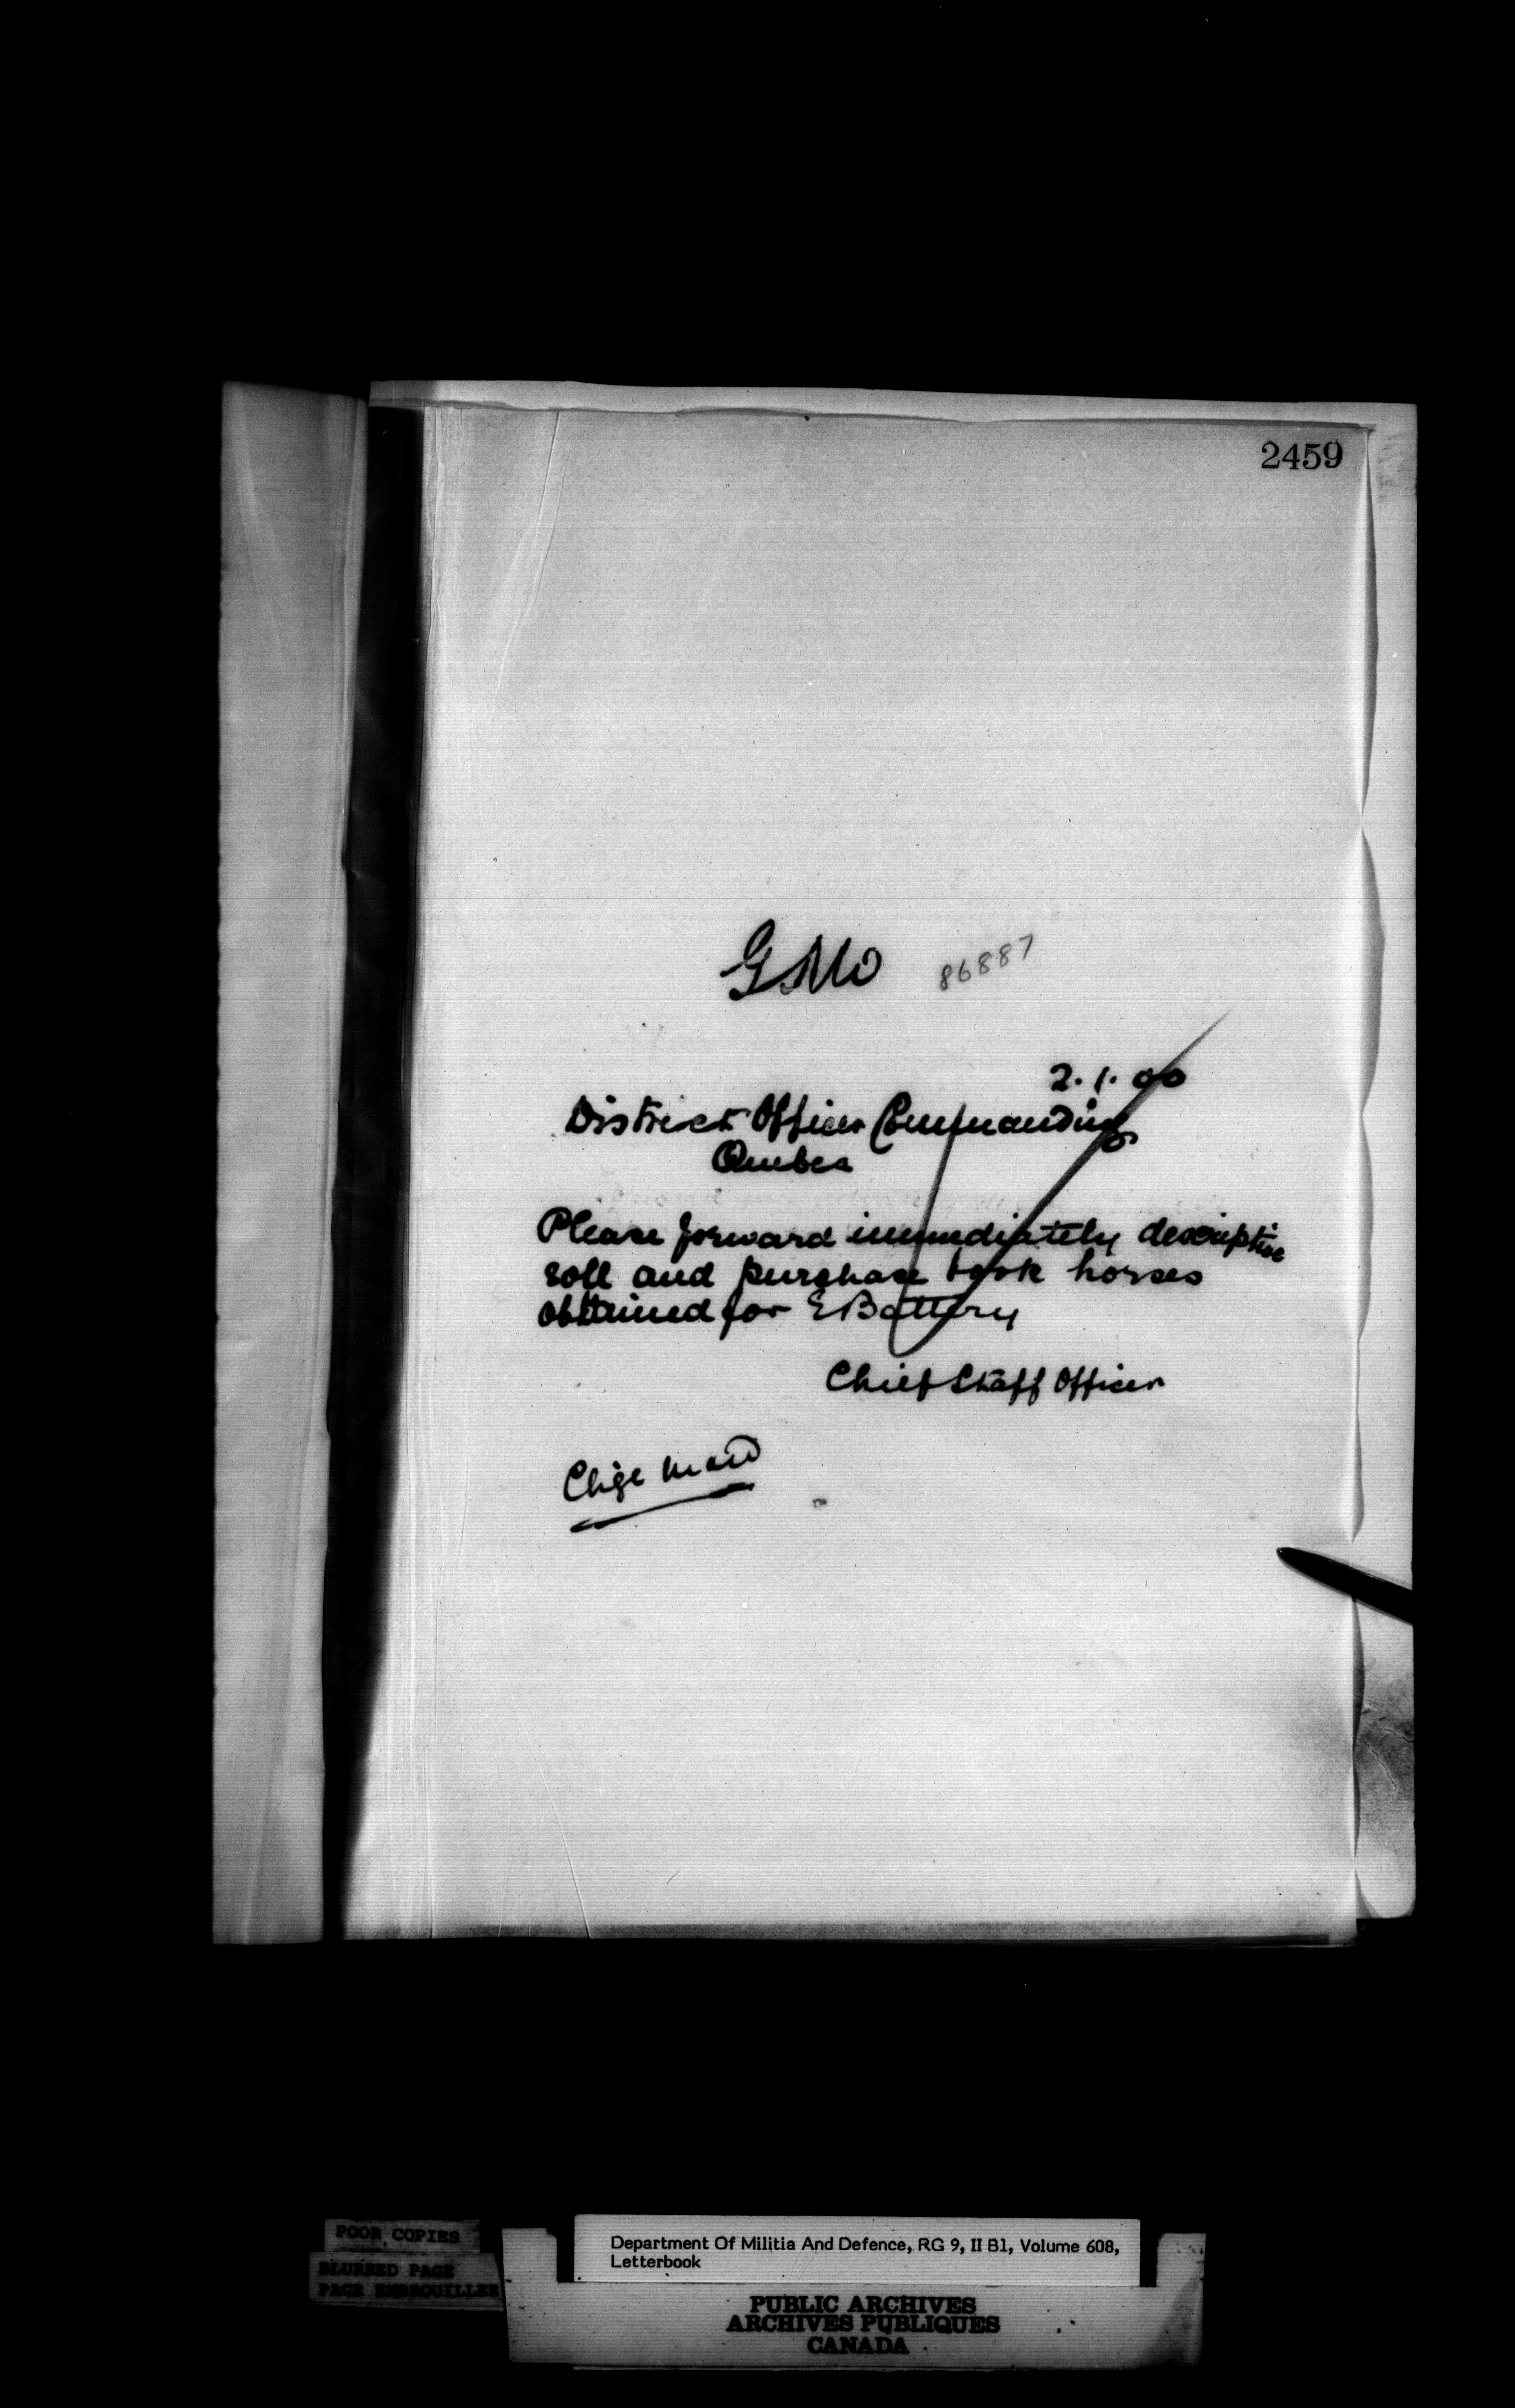 2459
GMO 86887
2.1.00
District Officer Commanding
Quebec
Please forward immediately descriptive
roll and purchase book horses
obtained for E Battery
Chief Staff Officer
Chge M and D
POOR COPIES
BLURRED PAGE
PAGE EMBROUILLEE
Department Of Militia And Defence, RG 9, II B1, Volume 608,
Letterbook
PUBLIC ARCHIVES
ARCHIVES PUBLIQUES
CANADA